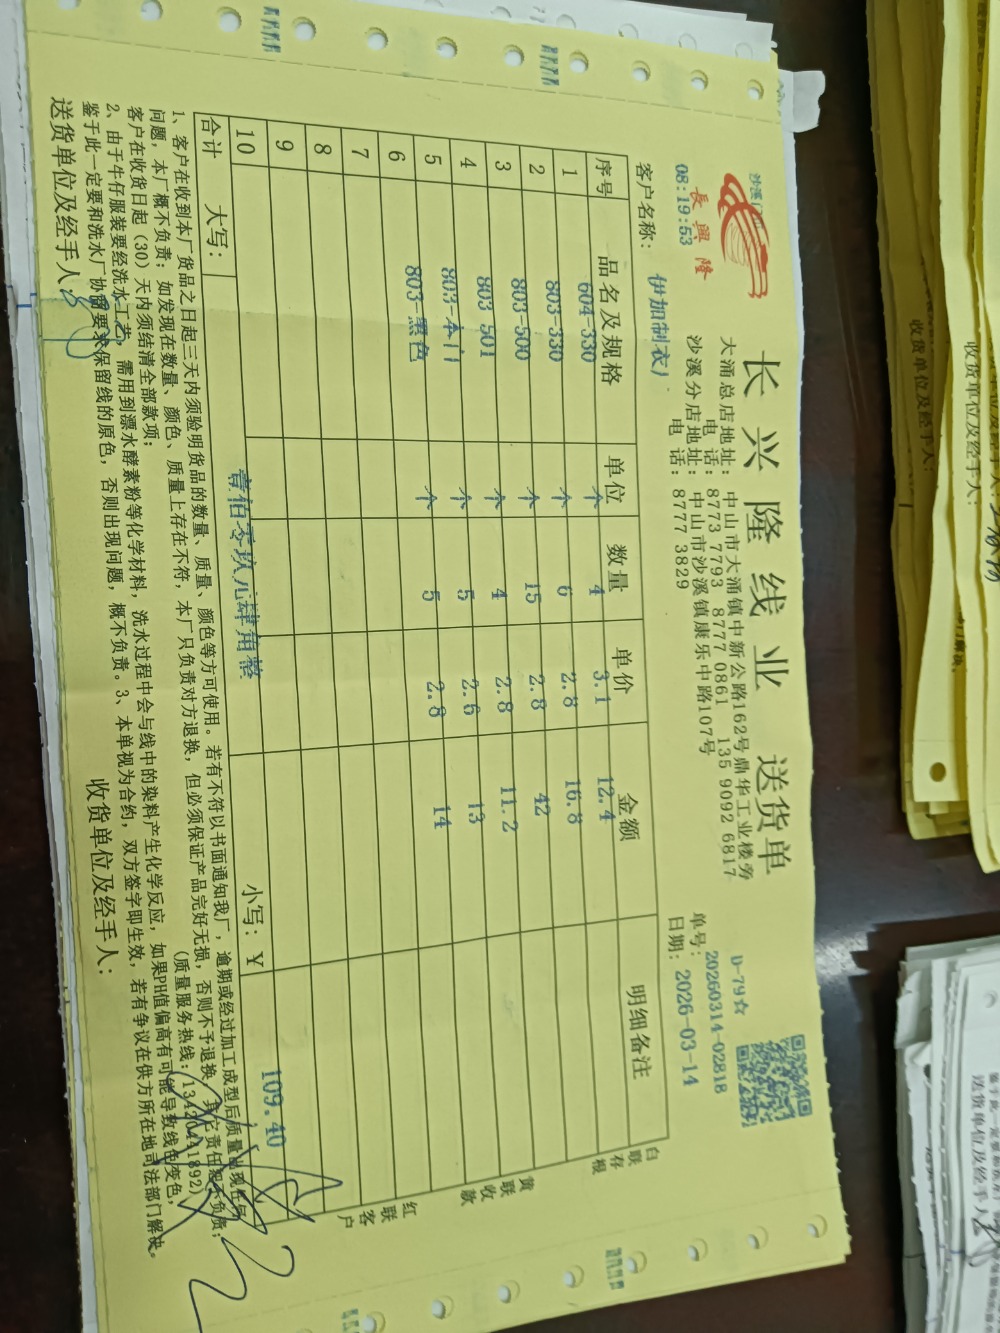 長興隆
08:19:53
长兴隆线业 送货单
大涌总店地址：中山市大涌镇中新公路162号鼎华工业楼旁
电 话：8773 7793 8777 0861 135 9092 6817
沙溪分店地址：中山市沙溪镇康乐中路107号
电 话：8777 3829
D-79☆
单号：20260314-02818
日期：2026-03-14
客户名称： 伊加制衣厂
序号 品名及规格 单位 数量 单价 金额 明细备注
1 604-330 个 4 3.1 12.4
2 803-330 个 6 2.8 16.8
3 803-500 个 15 2.8 42
4 803 501 个 4 2.8 11.2
5 803-本白 个 5 2.6 13
6 803-黑色 个 5 2.8 14
7
8
9
10
合计 大写： 壹佰零玖元肆角整 小写：￥ 109.40
白联存根
黄联收款
红联客户
1、客户在收到本厂货品之日起三天内须验明货品的数量、质量、颜色等方可使用。若有不符以书面通知我厂，逾期或经过加工成型后质量出现任何
问题，本厂概不负责；如发现在数量、颜色、质量上存在不符，本厂只负责对方退换，但必须保证产品完好无损，否则不予退换，其它责任恕不负责；
客户在收货日起（30）天内须结清全部款项； (质量服务热线：13420441892)
2、由于牛仔服装要经洗水工艺，需用到漂水酵素粉等化学材料，洗水过程中会与线中的染料产生化学反应，如果PH值偏高有可能导致线色变色，
鉴于此一定要和洗水厂协商要求保留线的原色，否则出现问题，概不负责。3、本单视为合约，双方签字即生效，若有争议在供方所在地司法部门解决。
送货单位及经手人：
收货单位及经手人：
收货单位及经手人：
收货单位及经手人：
送货单位及经手人